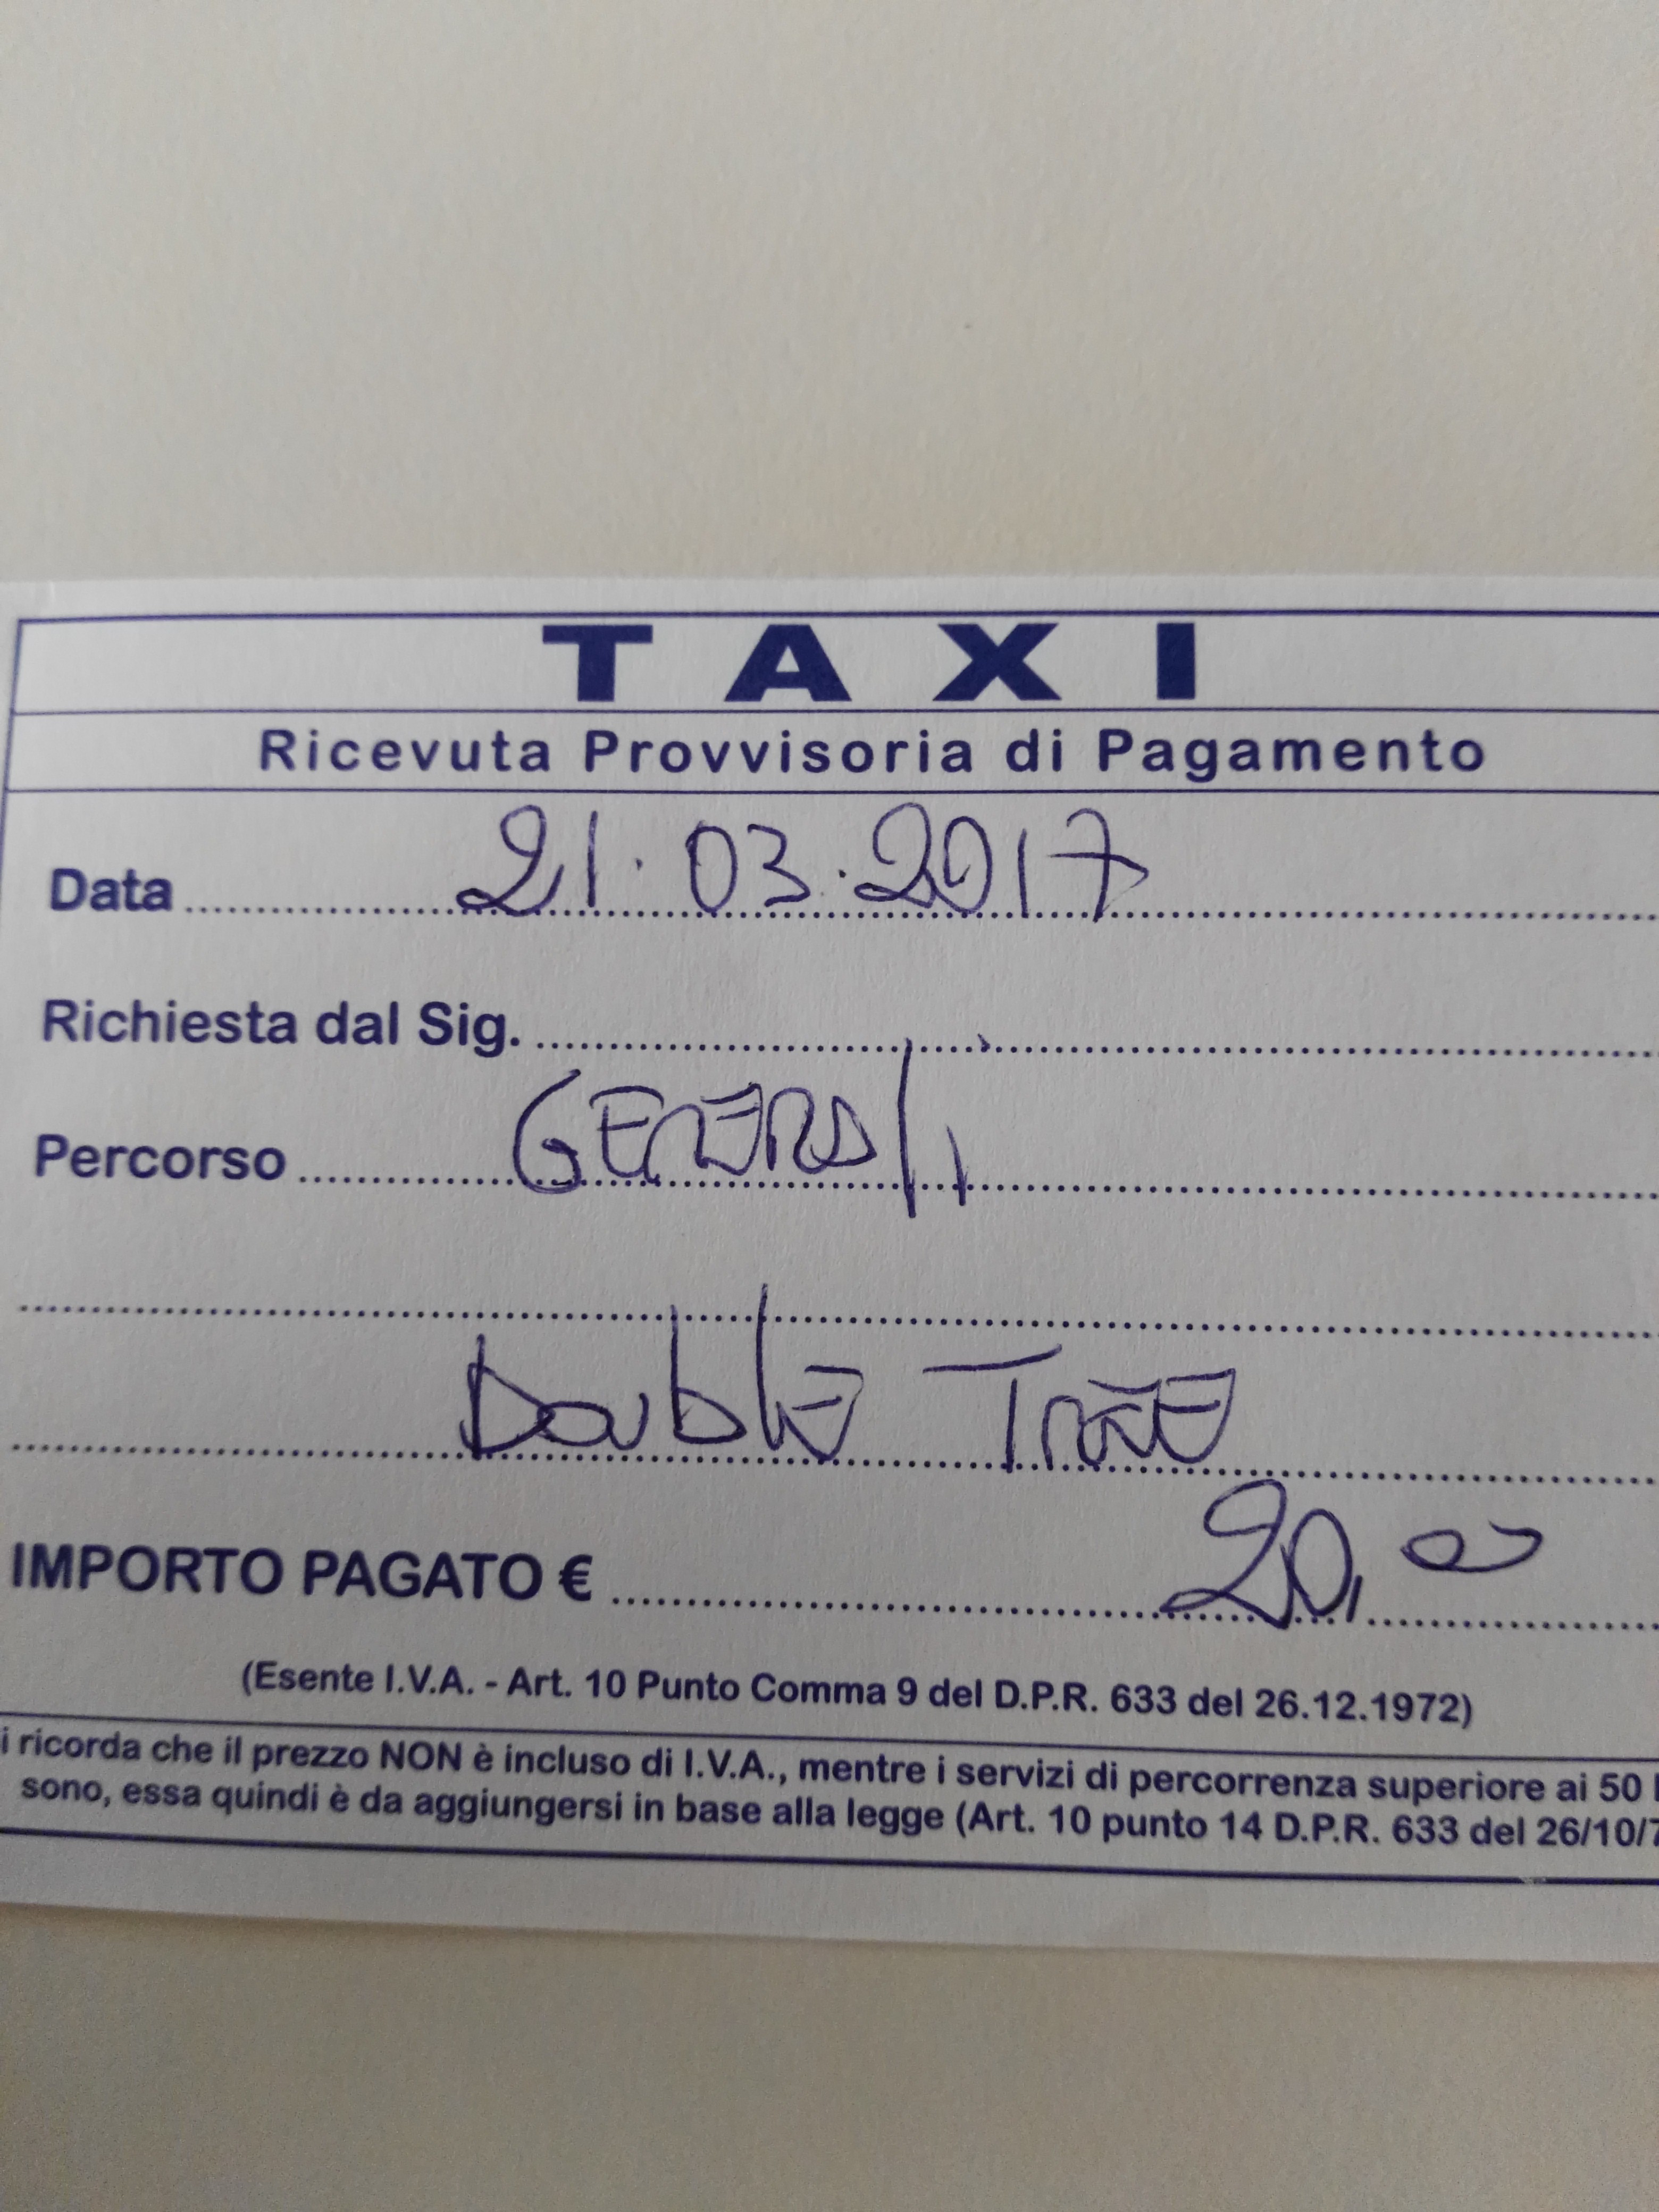 TAXI
Ricevuta Provvisoria di Pagamento
Data 21.03.2017
Richiesta dal Sig.
Percorso GENERALI
Double TREE
IMPORTO PAGATO € 20,00
(Esente I.V.A. - Art. 10 Punto Comma 9 del D.P.R. 633 del 26.12.1972)
i ricorda che il prezzo NON è incluso di I.V.A., mentre i servizi di percorrenza superiore ai 50
sono, essa quindi è da aggiungersi in base alla legge (Art. 10 punto 14 D.P.R. 633 del 26/10/7